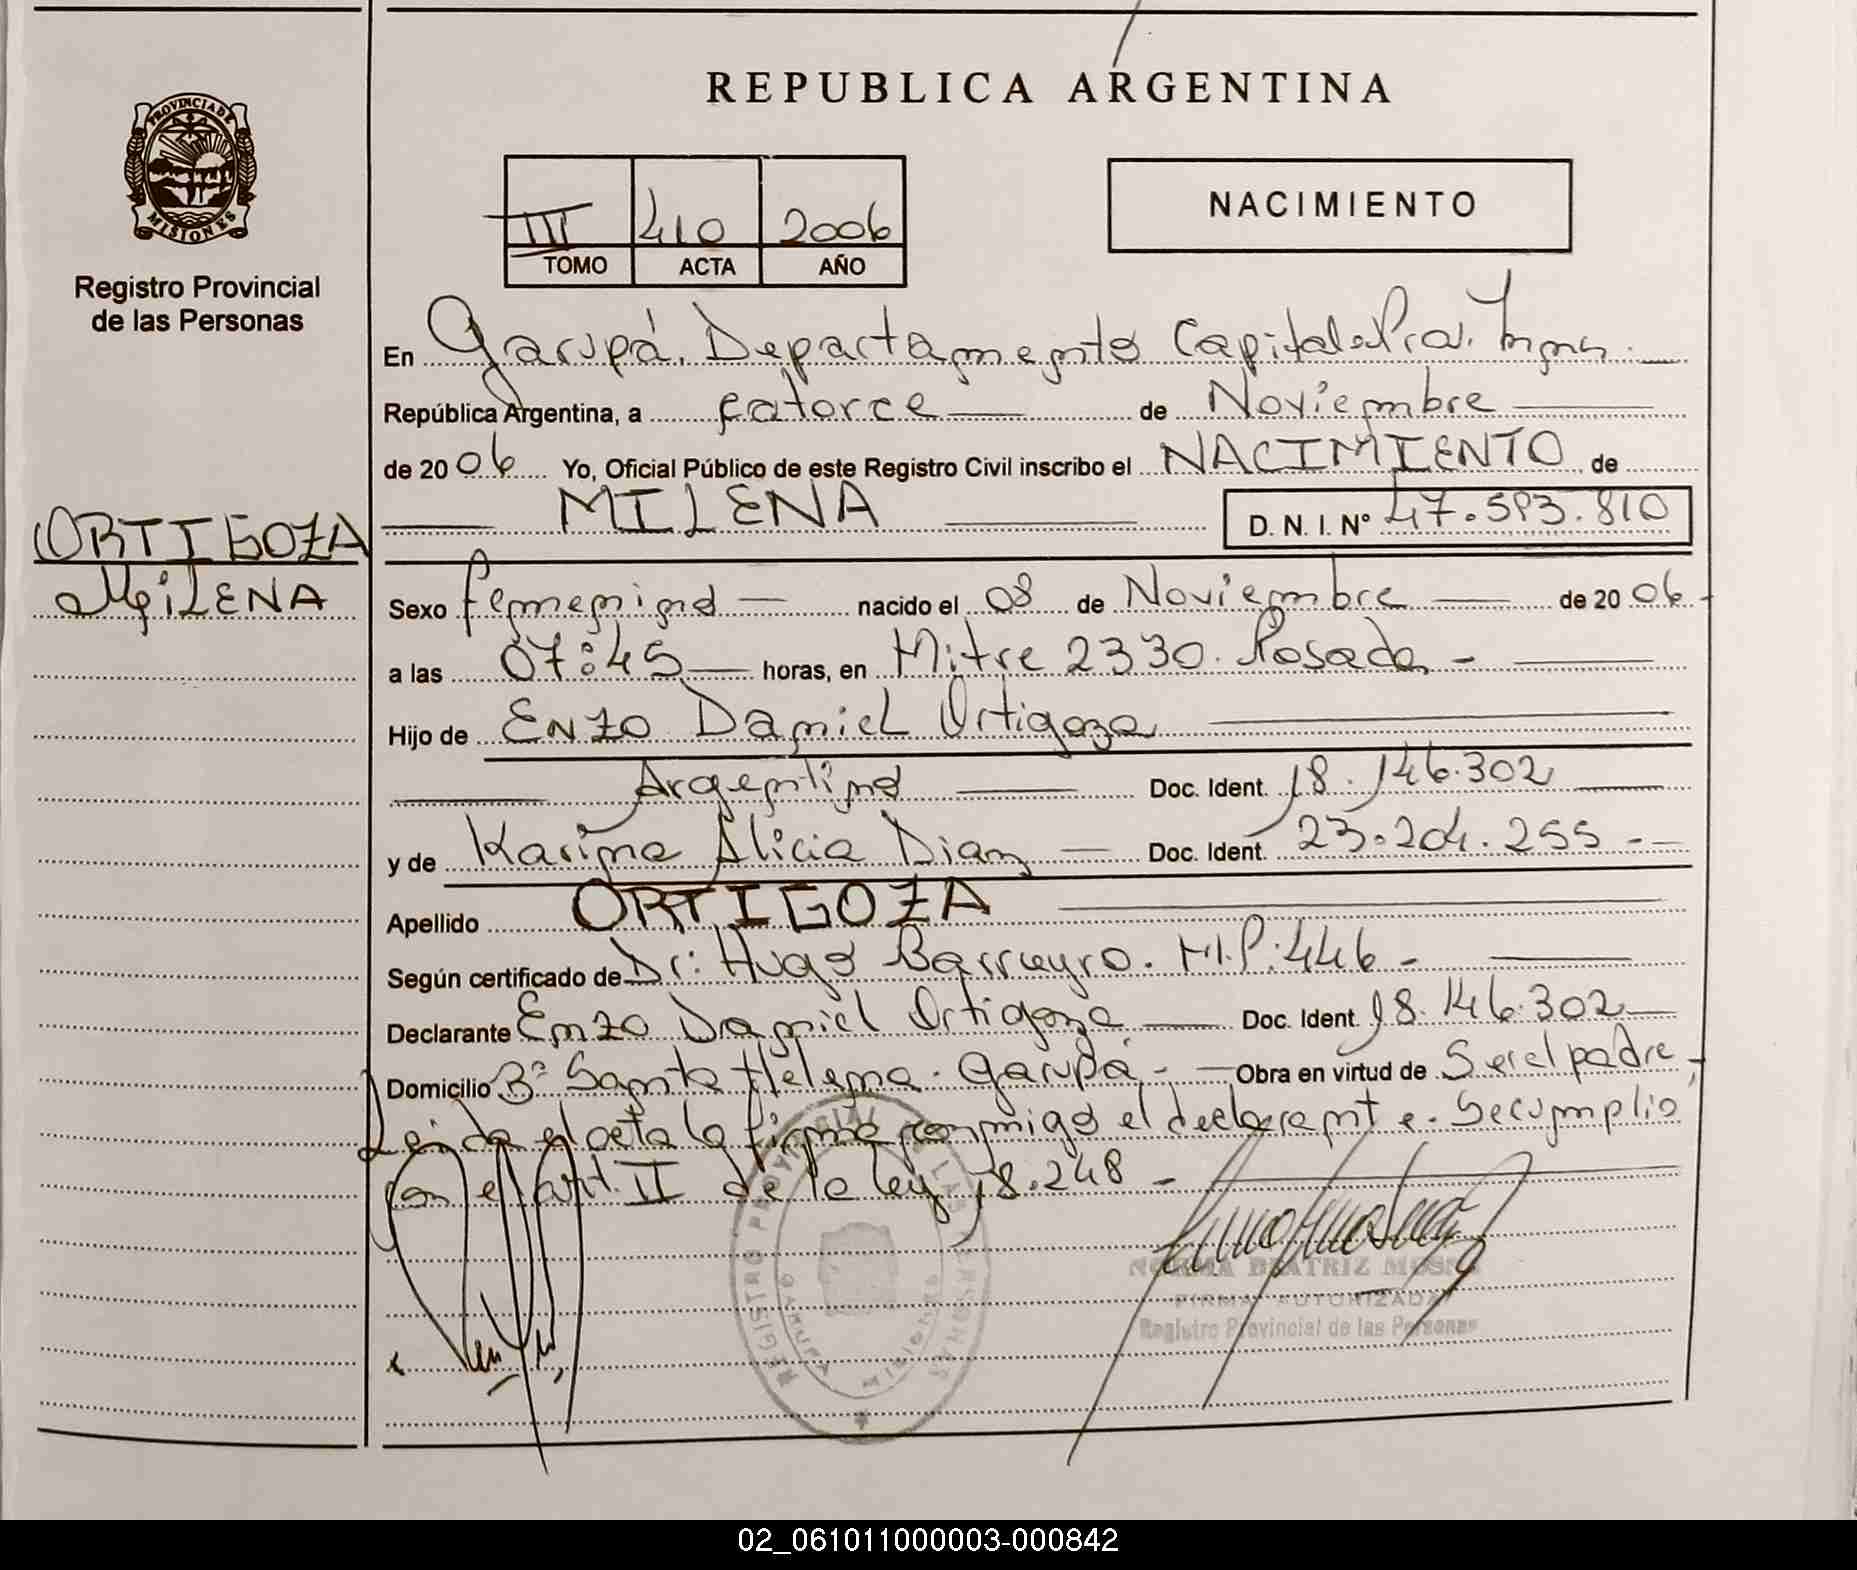 REPUBLICA ARGENTINA
PROVINCIA DE MISIONES
Registro Provincial
de las Personas
III 410 2006
TOMO ACTA AÑO
NACIMIENTO
En Garupá, Departamento Capital Prov. Mnes.
República Argentina, a catorce de Noviembre
de 2006 Yo, Oficial Público de este Registro Civil inscribo el NACIMIENTO de
MILENA D. N. I. Nº 47.593.810
ORTIGOZA
MILENA
Sexo femenino nacido el 08 de Noviembre de 2006-
a las 07:45 horas, en Mitre 2330. Posadas -
Hijo de Enzo Daniel Ortigoza
Argentino Doc. Ident. 18.146.302
y de Karina Alicia Diaz Doc. Ident. 23.204.255 -
Apellido ORTIGOZA
Según certificado de Dr: Hugo Barreyro. M.P:446 -
Declarante Enzo Daniel Ortigoza Doc. Ident. 18.146.302
Domicilio Bº Santa Helena. Garupá - Obra en virtud de Ser el padre -
Leida el acta la firma conmigo el declarante. Se cumplió
con el art. II de la ley 18.248 -
REGISTRO PROVINCIAL DE LAS PERSONAS
GARUPA MISIONES
NORMA BEATRIZ
FIRMA AUTORIZADA
Registro Provincial de las Personas
02_061011000003-000842